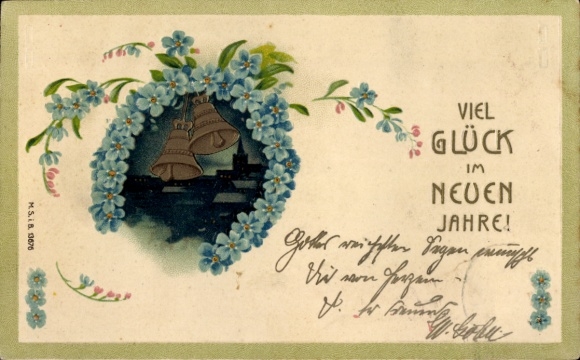 VIEL
GLÜCK
IM
NEUEN
JAHRE!
Gottes reichsten Segen wünscht
Dir von Herzen
M. S. i. B. 13676